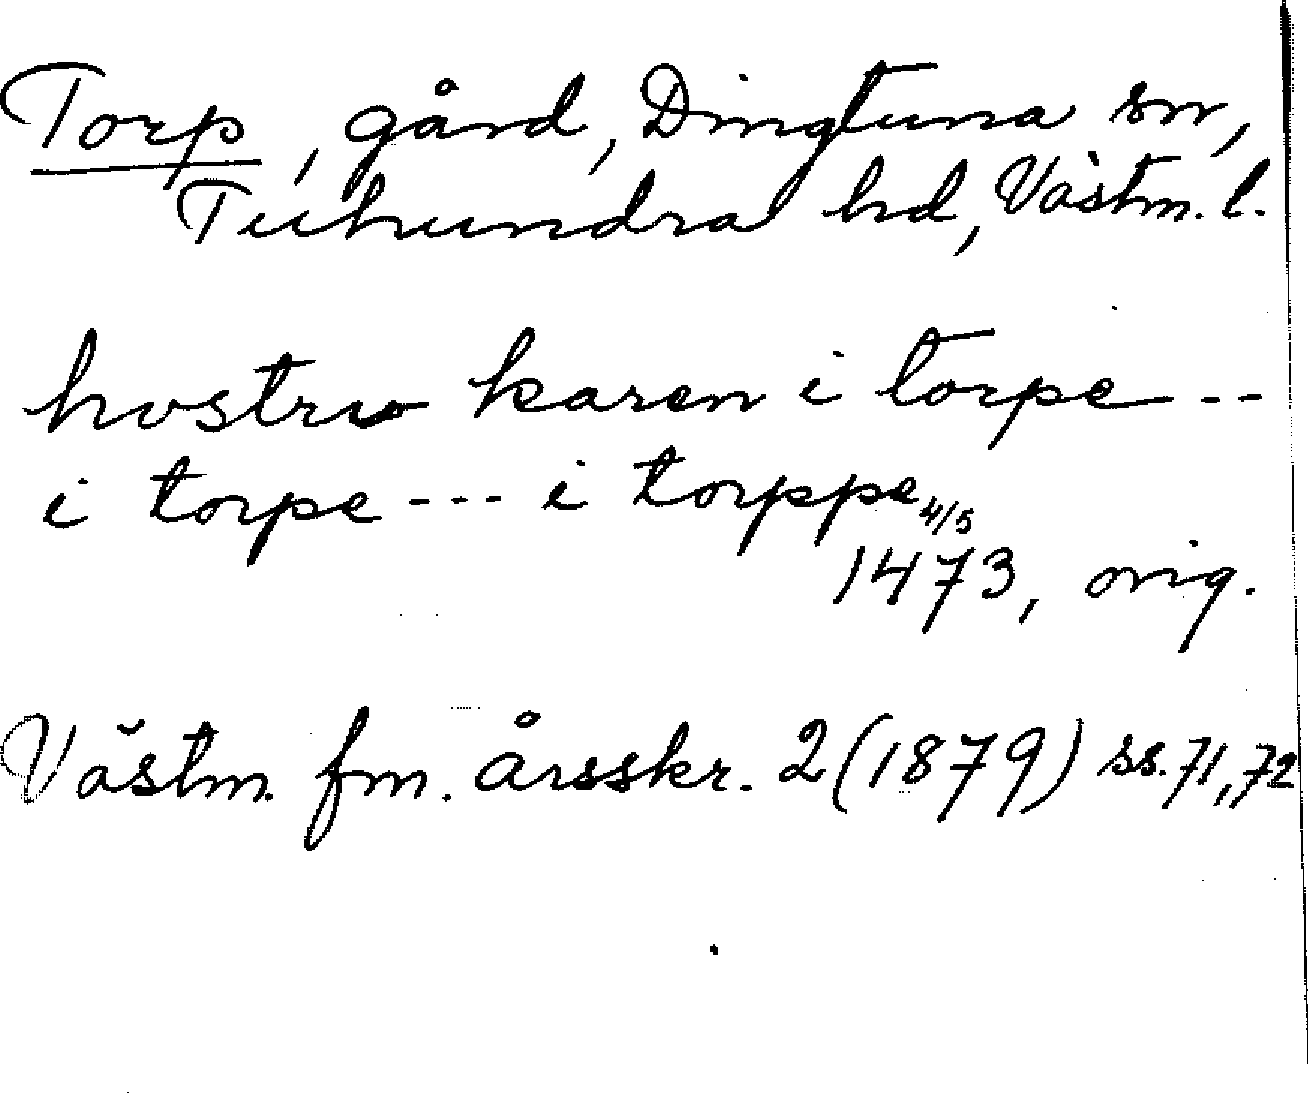 Torp, gård, Dingtuna sn,
Tuhundra hd, Västm. l.
hvstrv karen i torpe ---
i torpe --- i torppe 4/5
1473, orig.
Västm. fm. årsskr. 2 (1879) ss. 71, 72